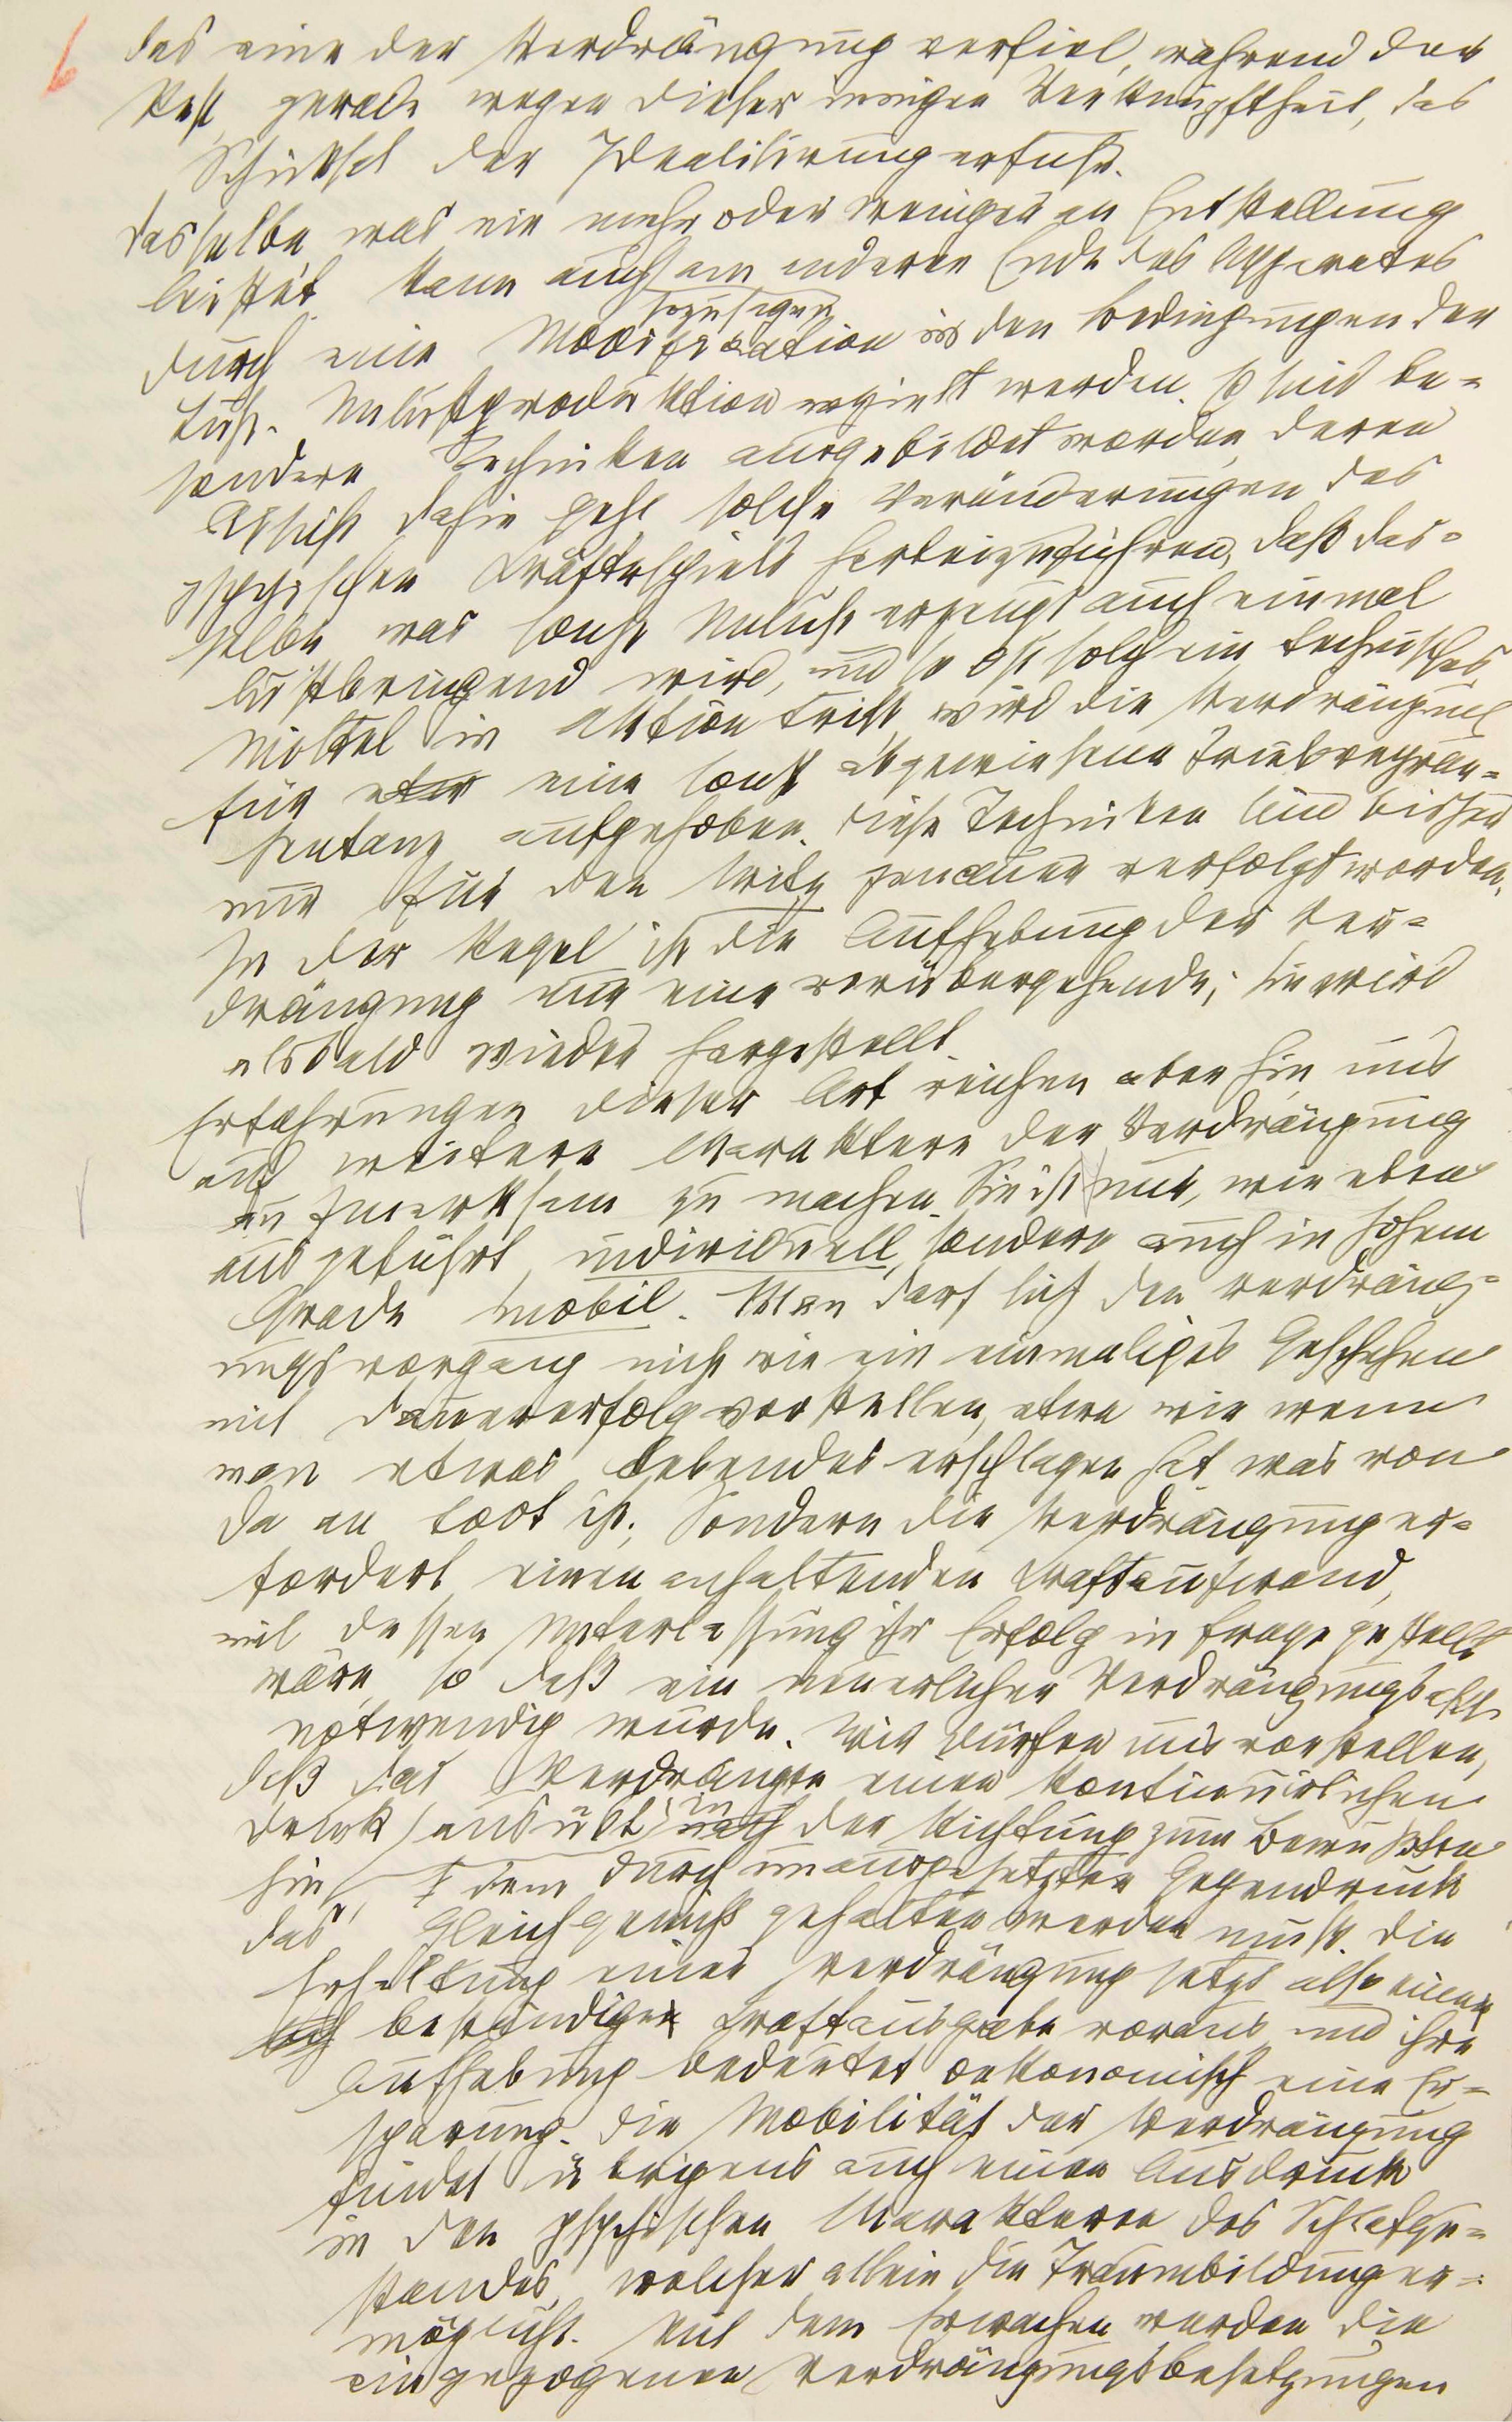 6
das eine der Verdrängung verfiel, während der
Rest gerade wegen dieser innigen Verknüpftheit, das
Schicksal der Idealisirung erfuhr.
Dasselbe, was ein mehr oder weniger an Entstellung
leistet, kann auch am anderen Ende des Apparates
sozusagen
durch eine Modifikation in den Bedingungen der
Lust- Unlustproduktion erzielt werden. Es sind be-
sondere Techniken ausgebildet worden, deren
Absicht dahin geht solche Veränderungen des
psychischen Kräftespiels herbeizuführen, daß das-
selbe was sonst Unlust erzeugt auch einmal
lustbringend wird, und so oft solch ein technisches
Mittel in Aktion tritt, wird die Verdrängung
für eine sonst abgewiesene Triebrepräs-
sentanz aufgehoben. Diese Techniken sind bisher
nur für den Witz genauer verfolgt worden.
In der Regel ist die Aufhebung der Ver-
drängung nur eine vorübergehende; sie wird
alsbald wieder hergestellt.
Erfahrungen dieser Art reichen aber hin uns
auf weitere Charaktere der Verdrängung
aufmerksam zu machen. Sie ist nur, wie eben
ausgeführt, individuell, sondern auch in hohem
Grade mobil. Man darf sich den Verdräng-
ungsvorgang nicht wie ein einmaliges Geschehen
mit Dauererfolg vorstellen, etwa wie wenn
man etwas Lebendes erschlagen hat was von
da an todt ist; Sondern die Verdrängung er-
fordert einen anhaltenden Kraftaufwand,
mit dessen Unterlassung ihr Erfolg in Frage gestellt
wäre, so daß ein neuerlicher Verdrängungsakt
notwendig würde. Wir dürfen uns vorstellen,
daß das Verdrängte einen kontinuirlichen
in
Druck ausübt nach der Richtung zum Bewußten
hin, dem durch unausgesetzten Gegendruck
das Gleichgewicht gehalten werden muß. Die
Erhaltung einer Verdrängung setzt also eine
beständige Kraftausgabe voraus und ihre
Aufhebung bedeutet oekonomisch eine Er-
sparung. Die Mobilität der Verdrängung
findet übrigens auch einen Ausdruck
in den psychischen Charakteren des Schlafzu-
standes, welcher allein die Traumbildung er-
möglicht. Mit dem Erwachen werden die
eingezogenen Verdrängungsbesetzungen